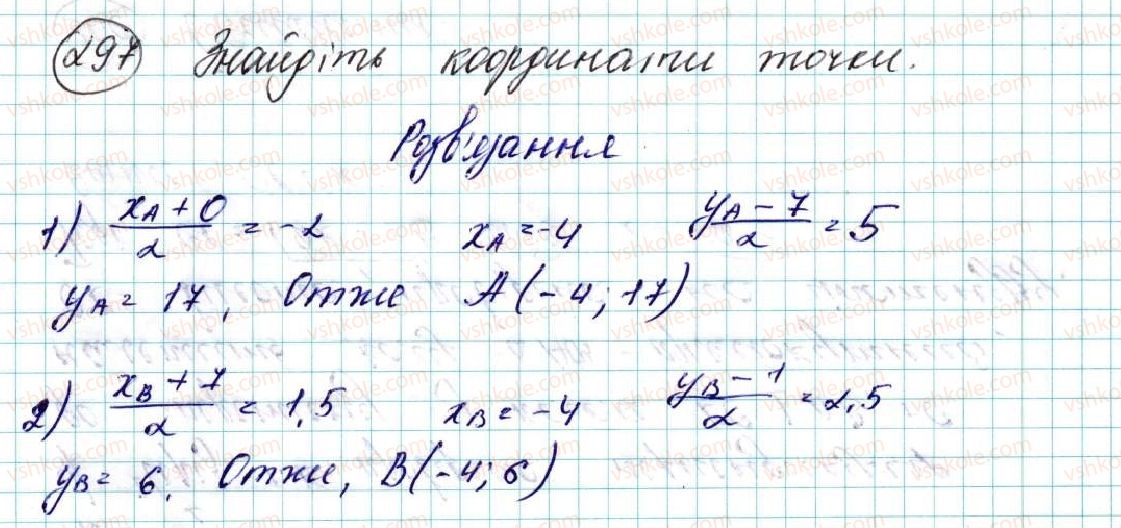 297 Знайдіть координати точки.
Розв'язання
1) (xA + 0)/2 = -2 xA = -4 (yA - 7)/2 = 5
yA = 17, Отже A(-4; 17)
2) (xB + 7)/2 = 1,5 xB = -4 (yB - 1)/2 = 2,5
yB = 6. Отже, B(-4; 6)